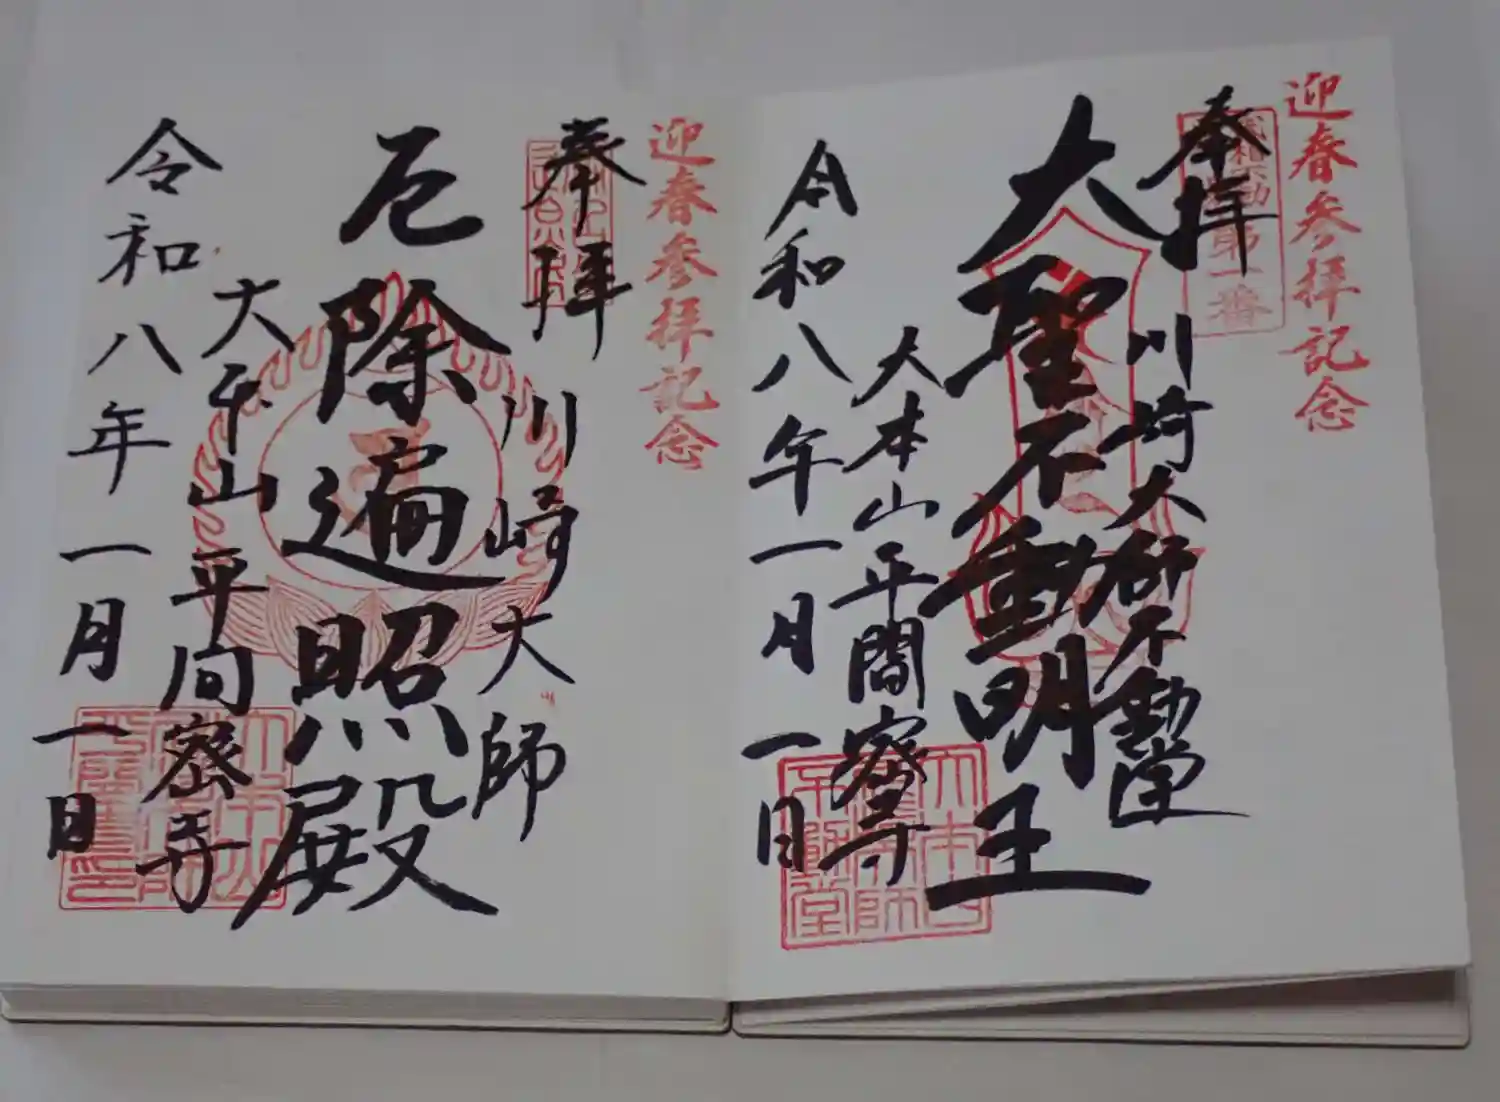 迎春参拝記念
奉拝
川崎大師不動堂
大聖不動明王
大本山平間寺
令和八年一月一日
第一番
迎春参拝記念
奉拝
川崎大師
厄除遍照殿
大本山平間寺
令和八年一月一日